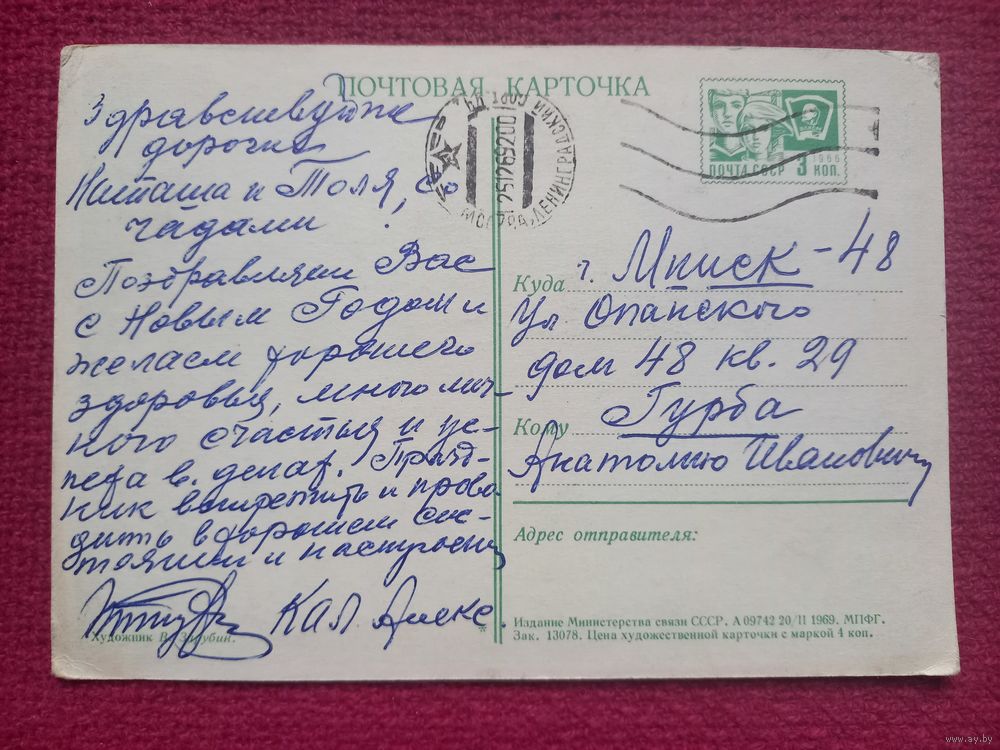 ПОЧТОВАЯ КАРТОЧКА
Здравствуйте
дорогие
Наташа и Толя, со
чадами
Поздравляем Вас
с Новым Годом и
желаем хорошего
здоровья, много лич-
ного счастья и ус-
пеха в делах. Празд-
ник встретить и прово
дить в хорошем сос-
тоянии и настроении
Кал. Алекс.
Художник В. Зарубин.
МОСКВА, ЛЕНИНГРАДСКИЙ
2512692200
1966
ПОЧТА СССР 3 КОП.
Куда г. Минск-48
Ул Опанского
дом 48 кв. 29
Кому Гурба
Анатолию Ивановичу
Адрес отправителя:
Издание Министерства связи СССР. А 09742 20/II 1969. МПФГ.
Зак. 13078. Цена художественной карточки с маркой 4 коп.
www.ay.by